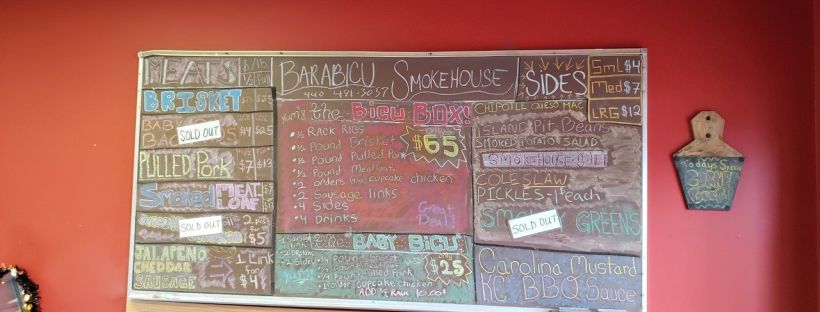 MEATS
BARABICU SMOKEHOUSE
440 481-3057
SIDES
SmL $4
Med $7
LRG $12
BRISKET
BABY
SOLD OUT
$4 $25
PULLED PORK
$7 $13
Smoked MEAT LOAF
SOLD OUT
2 for $5
JALAPENO CHEDDAR SAUSAGE
1 Link for $4
Yum! the BICU BOX!
only $65
½ RACK RIBS
½ Pound Brisket
½ Pound Pulled Pork
½ Pound Meatloaf
2 orders cupcake chicken
2 Sausage links
4 Sides
4 Drinks
Great Deal!
the BABY BICU
2 DRINKS
2 Sides
Yum!
Pulled Pork
1 order cupcake chicken
only $25
CHIPOTLE QUESO MAC
ISLAND Pit Beans
SMOKED POTATO SALAD
COLESLAW
PICKLES - 1$ each
SOLD OUT
GREENS
Carolina Mustard
KC BBQ Sauce